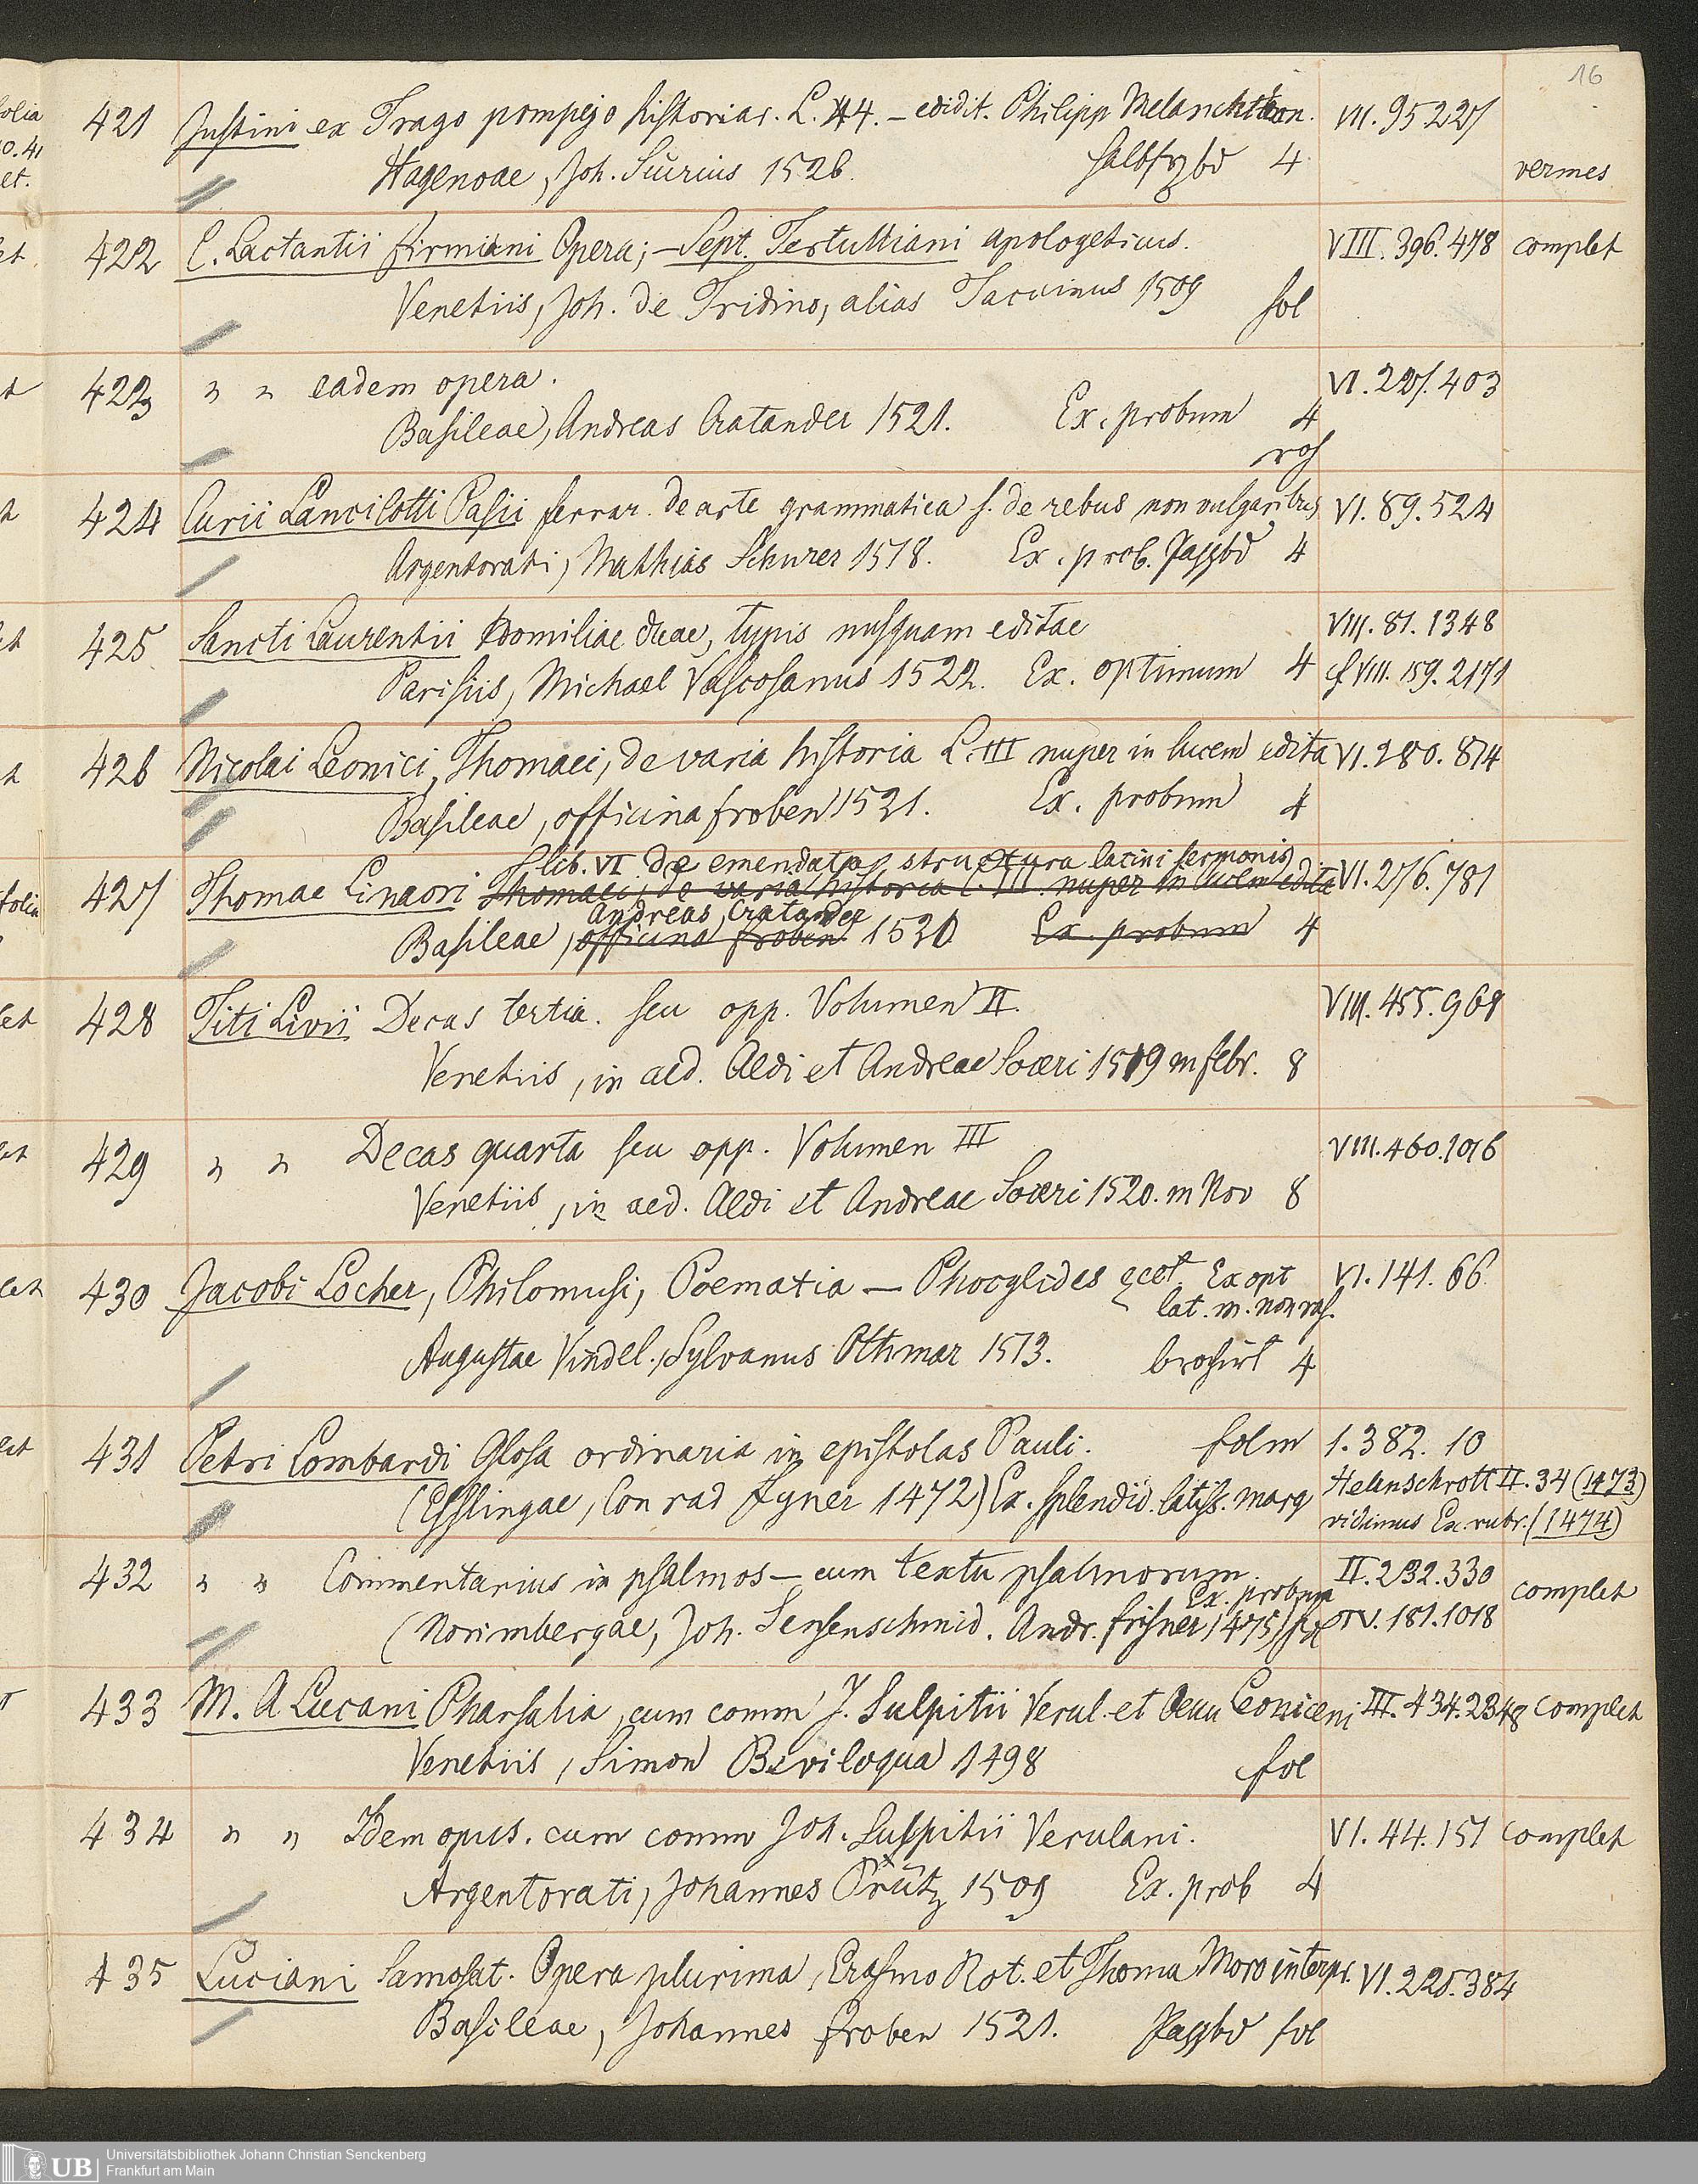 16
421 Justini ex Trago pompejo historiar. L. 44. – edidit. Philipp Melanchthon. VII. 95 227
Hagenoae, Joh. Secürius 1526. halbfrzbd 4 vermes
422 C. Lactantii firmiani Opera; – Sept. Tertulliani apologeticus. VIII. 396. 478 complet
Venetiis, Joh. de Tridino, alias Tacuinus 1509 fol
423 " " eadem opera. VI. 227. 403
Basileae, Andreas Cratander 1521. Ex. probum 4
roh
424 Curii Lancilotti Pasii ferrar. de arte grammatica s. de rebus non vulgaribus VI. 89. 524
Argentorati, Mathias Schurer 1518. Ex. prob. Pappbd 4
425 Sancti Laurentii Homiliae duae, typis nusquam editae VIII. 81. 1348
Parisiis, Michael Vascosanus 1522. Ex. optimum 4 cf VIII. 159. 2171
426 Nicolai Leonici, Thomaei, de varia historia L. III nuper in lucem edita VI. 280. 814
Basileae, officina froben 1521. Ex. probum 4
lib. VI de emendata structura latini sermonis
427 Thomae Linacri Thomaei, de varia historia L. III. nuper in lucem edita VI. 276. 781
Andreas Cratander
Basileae, officina froben 1530 Ex. probum 4
428 Titi Livii Decas tertia. seu opp. Volumen II. VIII. 455. 968
Venetiis, in aed. Aldi et Andreae Soceri 1519 m febr. 8
429 " " Decas quarta seu opp. Volumen III VIII. 460. 1016
Venetiis, in aed. Aldi et Andreae Soceri 1520. m Nov 8
430 Jacobi Locher, Philomusi, Poematia – Phocylides ecet. Ex opt VI. 141. 66
lat. m. non ras.
Augustae Vindel., Sylvanus Othmar 1513. brochirt 4
431 Petri Lombardi Glosa ordinaria in epistolas Pauli. fol m 1. 382. 10
(Esslingae, Conrad Fyner 1472) Ex. splendid. latiss. marg Helmschrott II. 34 (1473)
vidimus Ex. rubr: (1474)
432 " " Commentarius in psalmos – cum textu psalmorum. II. 232. 330 complet
Ex. probum
(Norimbergae, Joh. Sensenschmid. Andr. frisner 1475) IV. 181. 1018
433 M. A Lucani Pharsalia, cum comm J. Sulpitii Verul. et Omn Leoniceni III. 434. 2348 complet
Venetiis, Simon Bevilaqua 1498 fol
434 " " Idem opus. cum comm Joh. Sulpitii Verulani. VI. 44. 151 complet
Argentorati, Johannes Prütz 1509 Ex. prob 4
435 Luciani Samosat. Opera plurima, Erasmo Rot. et Thoma Moro interpr. VI. 225. 384
Basileae, Johannes froben 1521. Pappbd fol
UB Universitätsbibliothek Johann Christian Senckenberg
Frankfurt am Main